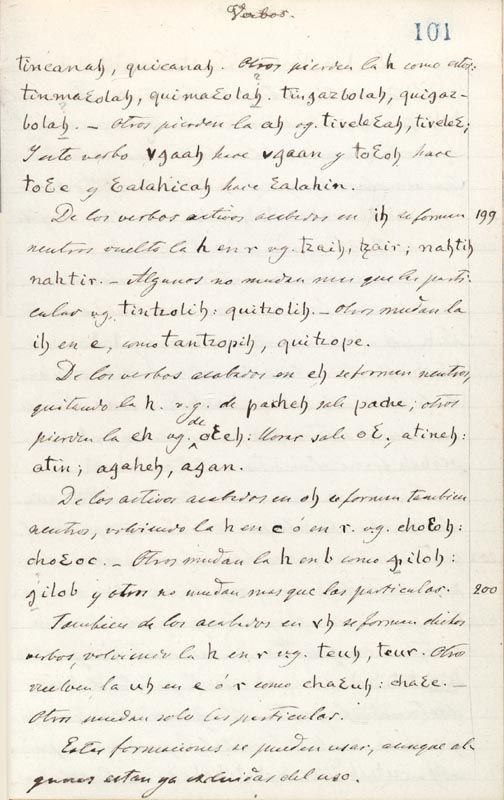 Verbos.
101
tincanaþ, quicanaþ. Otros pierden la h como estos:
tinmaꜫolaþ, quimaꜫolaþ. tingazbolaþ, quigaz-
bolaþ. — Otros pierden la ah vg. tiveleꜫah, tiveleꜫ;
Y este verbo vgaah hace vgaan y toꜫoh hace
toꜫe y ꜫalahicah hace ꜫalahin.
De los verbos activos acabados en ih se forman 199
neutros vuelto la h en r vg. tzaih, tzair; nahtih
nahtir. — Algunos no mudan mas que las parti-
culas vg. tintzolih: quitzolih. — Otros mudan la
ih en e, como tantzopih, quitzope.
De los verbos acabados en eh se forman neutros,
quitando la h. v.g. de pacheh sale pache; otros
pierden la eh vg. de oꜫeh: llorar sale oꜫ, atineh:
atin; agaheh, agan.
De los activos acabados en oh se forman tambien
neutros, volviendo la h en c ó en r. vg. choꜫoh:
choꜫoc. — Otros mudan la h en b como giloh:
gilob y otros no mudan mas que las particulas. 200
Tambien de los acabados en vh se forman dichos
verbos, volviendo la h en r vg. teuh, teur. Otros
vuelven la uh en e ó r como chaꜫuh: chaꜫe. —
Otros mudan solo las particulas.
Estas formaciones se pueden usar, aunque al-
gunas estan ya del uso.